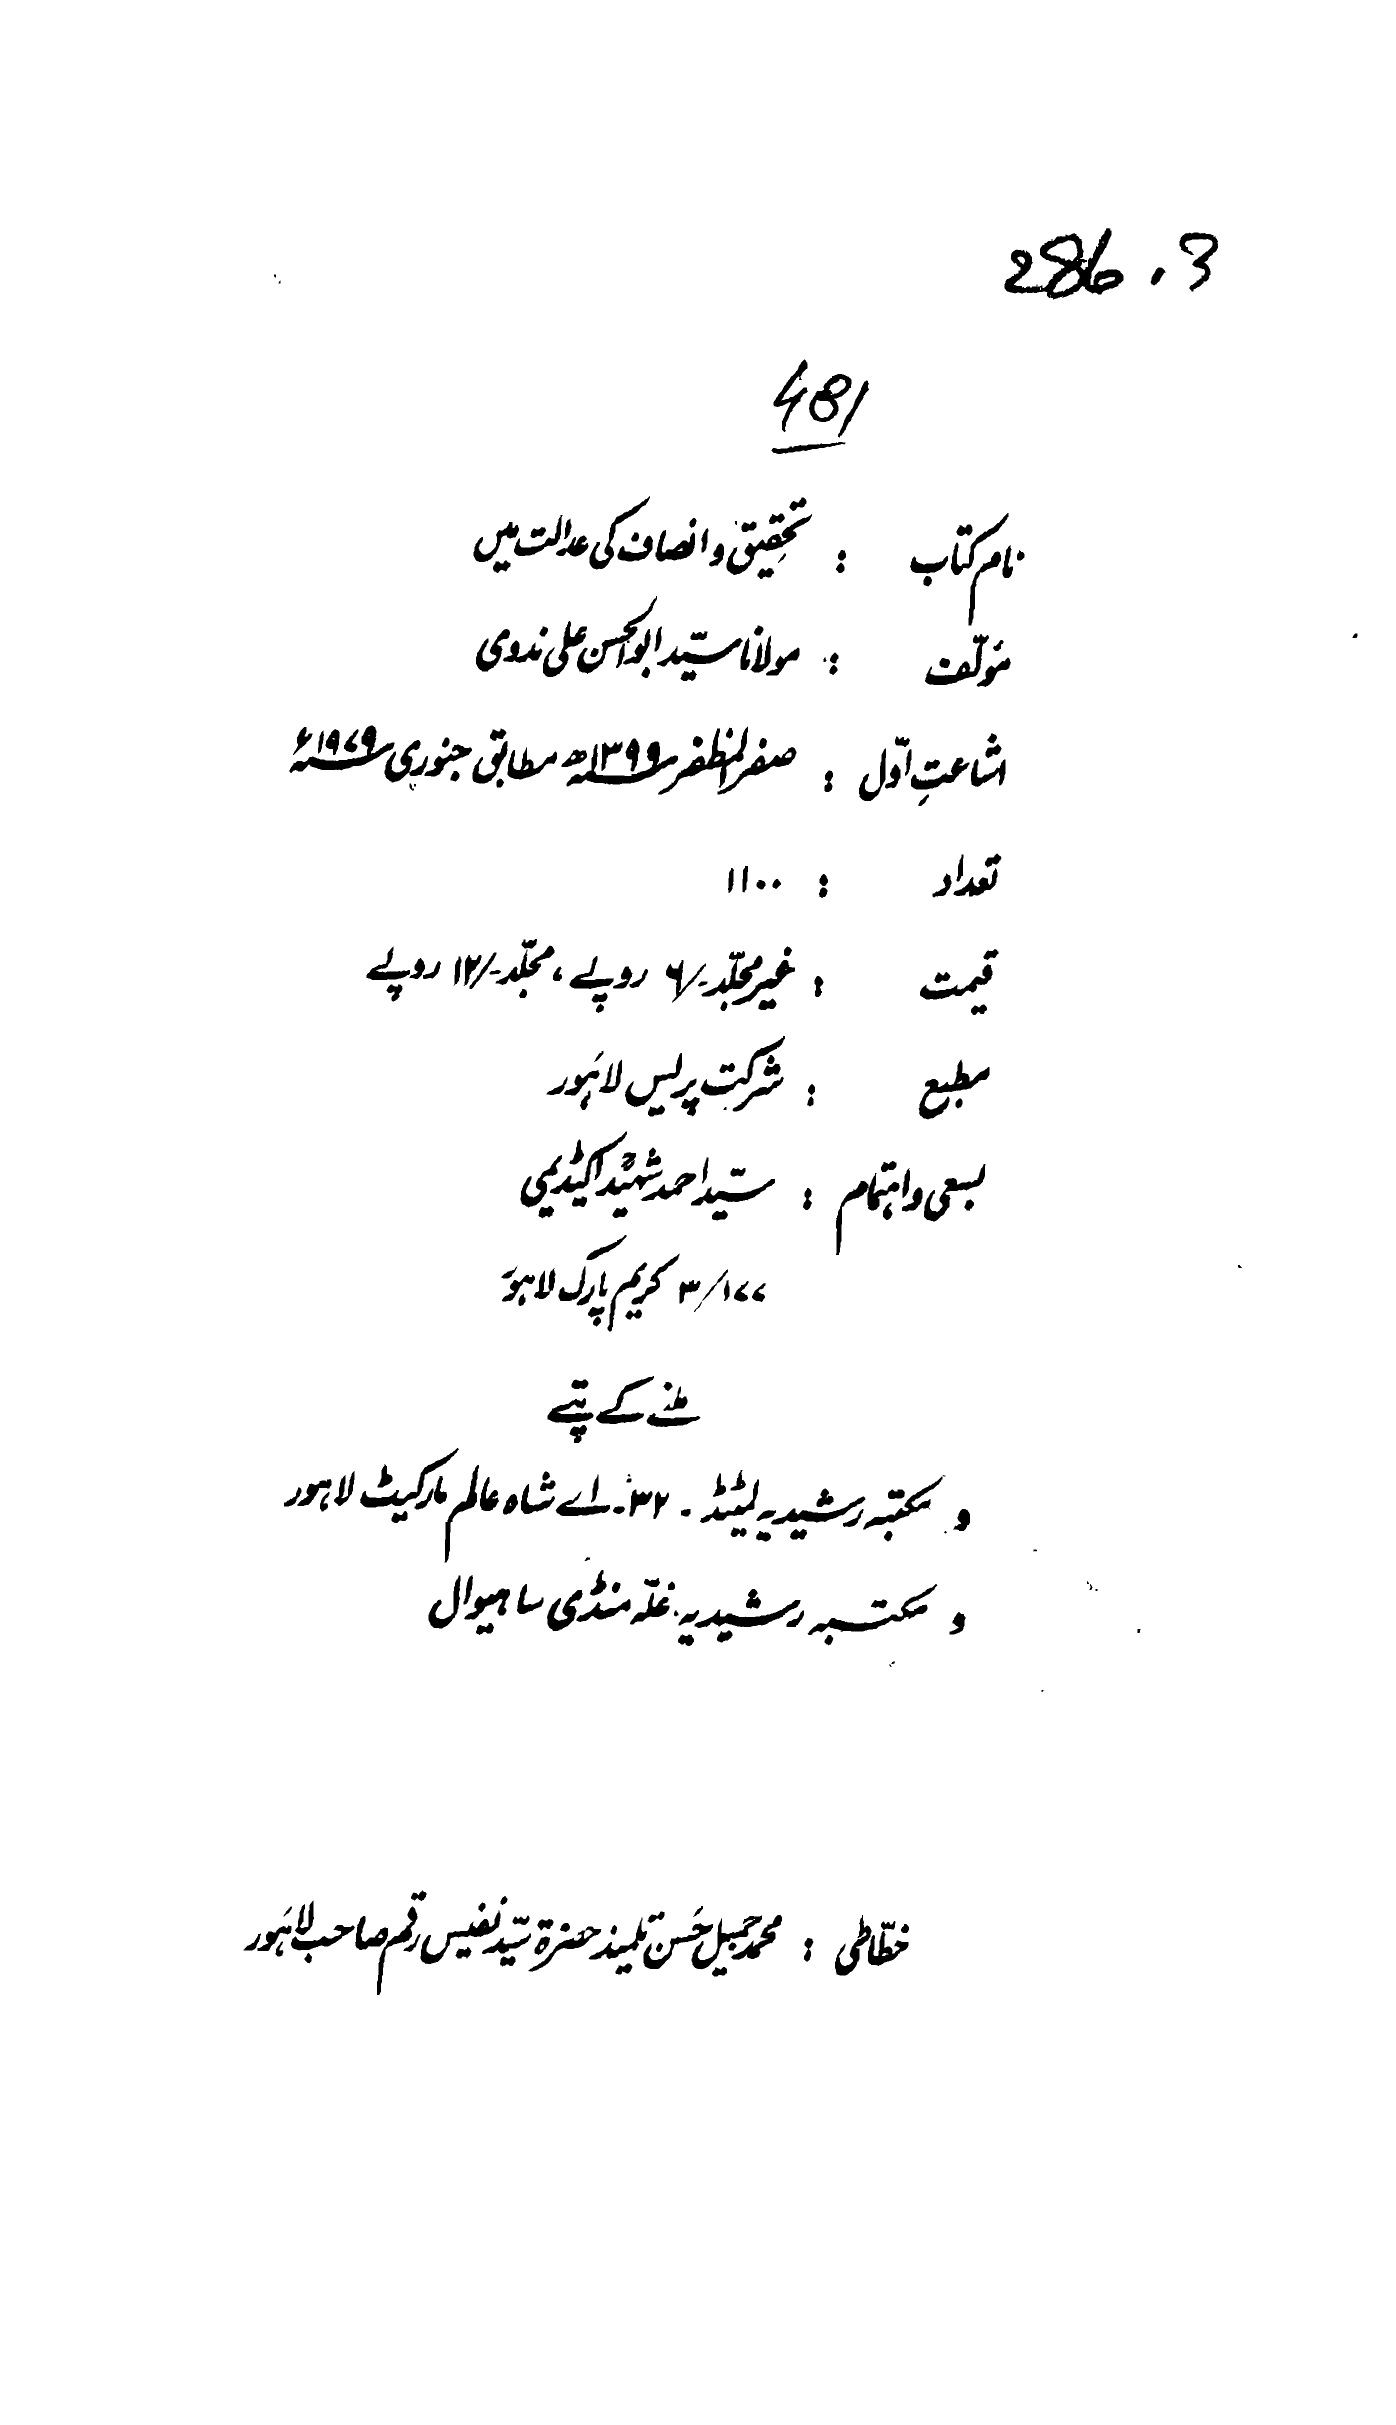 286.3
481
نام کتاب : تحقیق و انصاف کی عدالت میں
مؤلّف : مولانا سیّد ابوالحسن علی ندوی
اشاعتِ اوّل : صفر المظفر ۱۳۹۹ھ مطابق جنوری ۱۹۷۹ء
تعداد : ۱۱۰۰
قیمت : غیر مجلّد -/۶ روپے ، مجلّد -/۱۲ روپے
مطبع : شرکت پریس لاہور
بسعی و اہتمام : سیّد احمد شہیدؒ اکیڈیمی
۳/۱۷۷ کریم پارک لاہور
ملنے کے پتے
و مکتبہ رشیدیہ لمیٹڈ ۔ ۳۲۔ اے شاہ عالم مارکیٹ لاہور
و مکتبہ رشیدیہ ۔ غلّہ منڈی ساہیوال
خطّاطی : محمد جمیل حسن تلمیذ حضرۃ سیّد نفیس رقم صاحب لاہور